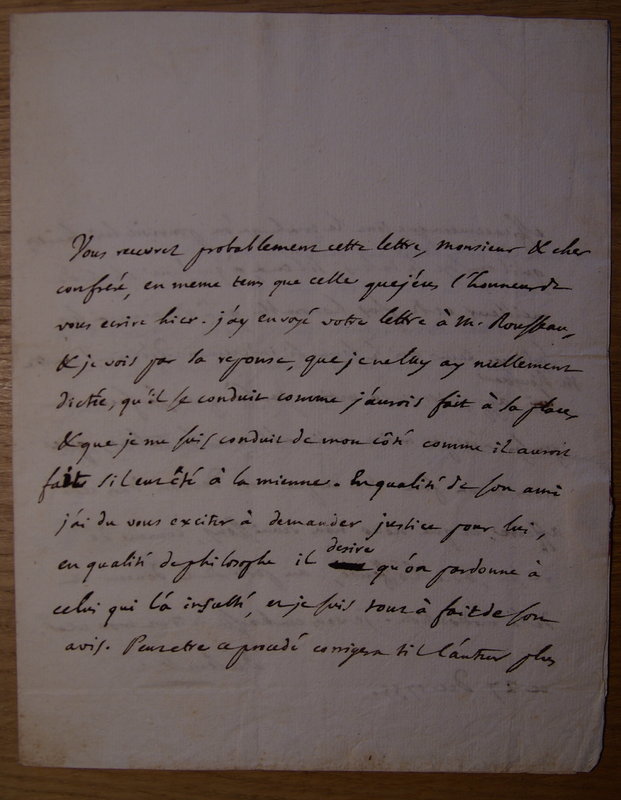 Vous recevrez probablement cette lettre, Monsieur & cher
confrére, en meme tems que celle que j'éus l'honneur de
vous ecrire hier. j'ay envoyé votre lettre à M. Rousseau,
& je vois par sa reponse, que je ne luy ay nullement
dictée, qu'il se conduit comme j'aurois fait à sa place,
& que je me suis conduit de mon côté comme il auroit
fait s'il eut été à la mienne. En qualité de son ami
j'ai du vous exciter à demander justice pour lui,
en qualité de philosophe il desire qu'on pardonne à
celui qui l'a insulté, et je suis tout à fait de son
avis. Peut etre ce procedé corrigera t'il l'auteur plus